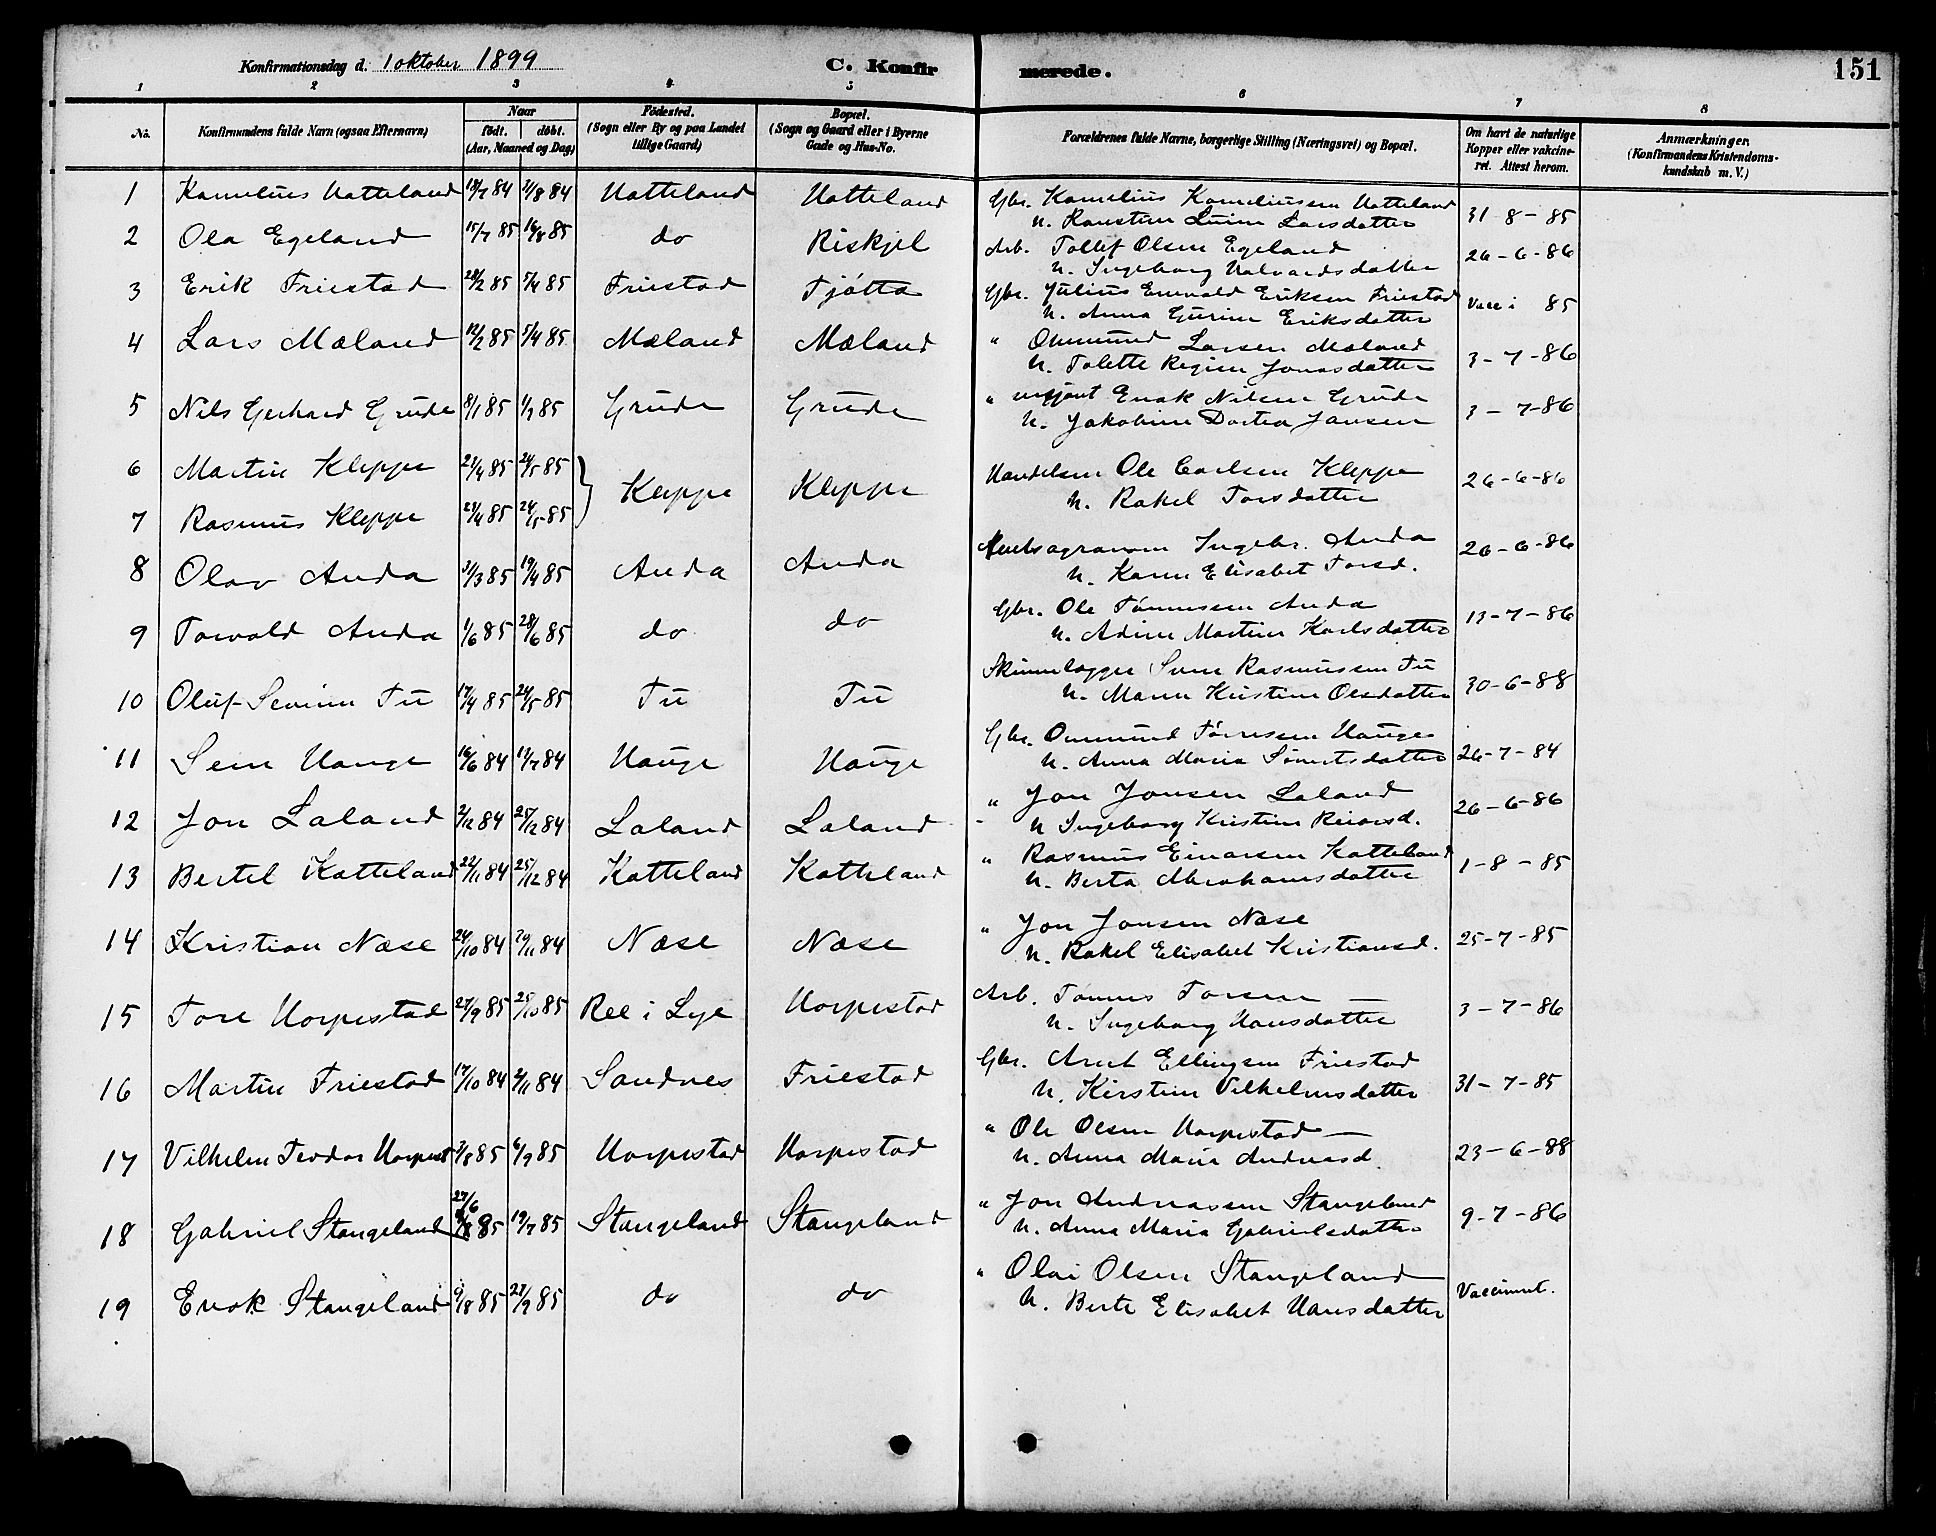 Konfirmationsdag d. 1 oktober 1899 C. Konfirmerede. 151
1 2 3 4 5 6 7 8
No. Konfirmandens fulde Navn (ogsaa Efternavn) Naar født. døbt. (Aar, Maaned og Dag) Fødested. (Sogn eller By og paa Landet tillige Gaard) Bopæl. (Sogn og Gaard eller i Byerne Gade og Hus-No. Forældrenes fulde Navne, borgerlige Stilling (Næringsvei) og Bopæl. Om havt de naturlige Kopper eller vakcineret. Attest herom. Anmærkninger. (Konfirmandens Kristendomskundskab m. V.)
1 Kornelius Hatteland 84 84 Hatteland Hatteland Gbr. Kornelius Korneliussen Hatteland 31-8-85
H. Larsdatter
2 Ola Egeland 15/7 85 16/8 85 do Riskjel Arb. Tollef Olsen Egeland 26-6-86
H. Ingeborg Halvardsdatter
3 Erik Friestad 28/2 85 5/4 85 Friestad Tjøtta Gbr. Julius Enevald Eriksen Friestad 85
H. Anna Gurine Eriksdatter
4 Lars Mæland 12/2 85 5/4 85 Mæland Mæland " Ommund Larsen Mæland 3-7-86
H. Tolette Regine Jonasdatter
5 Nils Gerhard Grude 8/1 85 85 Grude Grude " Enok Nilsen Grude 3-7-86
H. Jakobine Dortea Jansen
6 Martin Kleppe 23/4 85 24/5 85 Kleppe Kleppe Handelsm Ole Carlsen Kleppe 26-6-86
H. Rakel Torsdatter
7 Rasmus Kleppe 23/4 85 24/5 85
8 Olav Anda 3/3 85 19/4 85 Anda Anda Amtsagronom Ingebr. Anda 26-6-86
H. Karen Elisabet Torsd.
9 Torvald Anda 1/6 85 28/6 85 do do Gbr. Ole Tønnessen Anda 13-7-86
H. Adine Martine Karlsdatter
10 Oluf Sevrin Tu 17/4 85 24/5 85 Tu Tu Skinnelægger Sven Rasmussen Tu 30-6-88
H. Maren Kristine Olsdatter
11 Sem Hauge 16/6 84 84 Hauge Hauge Gbr. Ommund Tørresen Hauge 26-7-84
H. Anna Maria datter
12 Jon Laland 2/12 84 25/12 84 Laland Laland " Jon Jonsen Laland 26-6-86
H Ingeborg Kristine
13 Bertel Katteland 22/11 84 25/12 84 Katteland Katteland " Rasmus Einarsen Katteland 1-8-85
H. Berta Abrahamsdatter
14 Kristian Næse 24/10 84 84 Næse Næse " Jon Jonsen Næse 25-7-85
H. Rakel Elisabet Kristiansd.
15 Tore Horpestad 27/9 85 25/10 85 Ree i Lye Horpestad Arb. Tønnes Torsen — 3-7-86
H. Ingeborg Hansdatter
16 Martin Friestad 17/10 84 84 Sandnes Friestad Gbr. Arnt Ellingsen Friestad 31-7-85
H. Kirstine Vilhelmsdatter
17 Vilhelm Teodor Horpest 85 6/9 85 Horpestad Horpestad " Ole Olsen Horpestad — 23-6-88
H. Anna Maria Andreasd.
18 Gabriel Stangeland 27/6 85 19/7 85 Stangeland Stangeland " Jon Andreasen Stangeland 9-7-86
H. Anna Maria Gabrielsdatter
19 Enok Stangeland 9/8 85 27/9 85 do do " Olai Olsen Stangeland Vaccineret.
H. Berte Elisabet Hansdatter